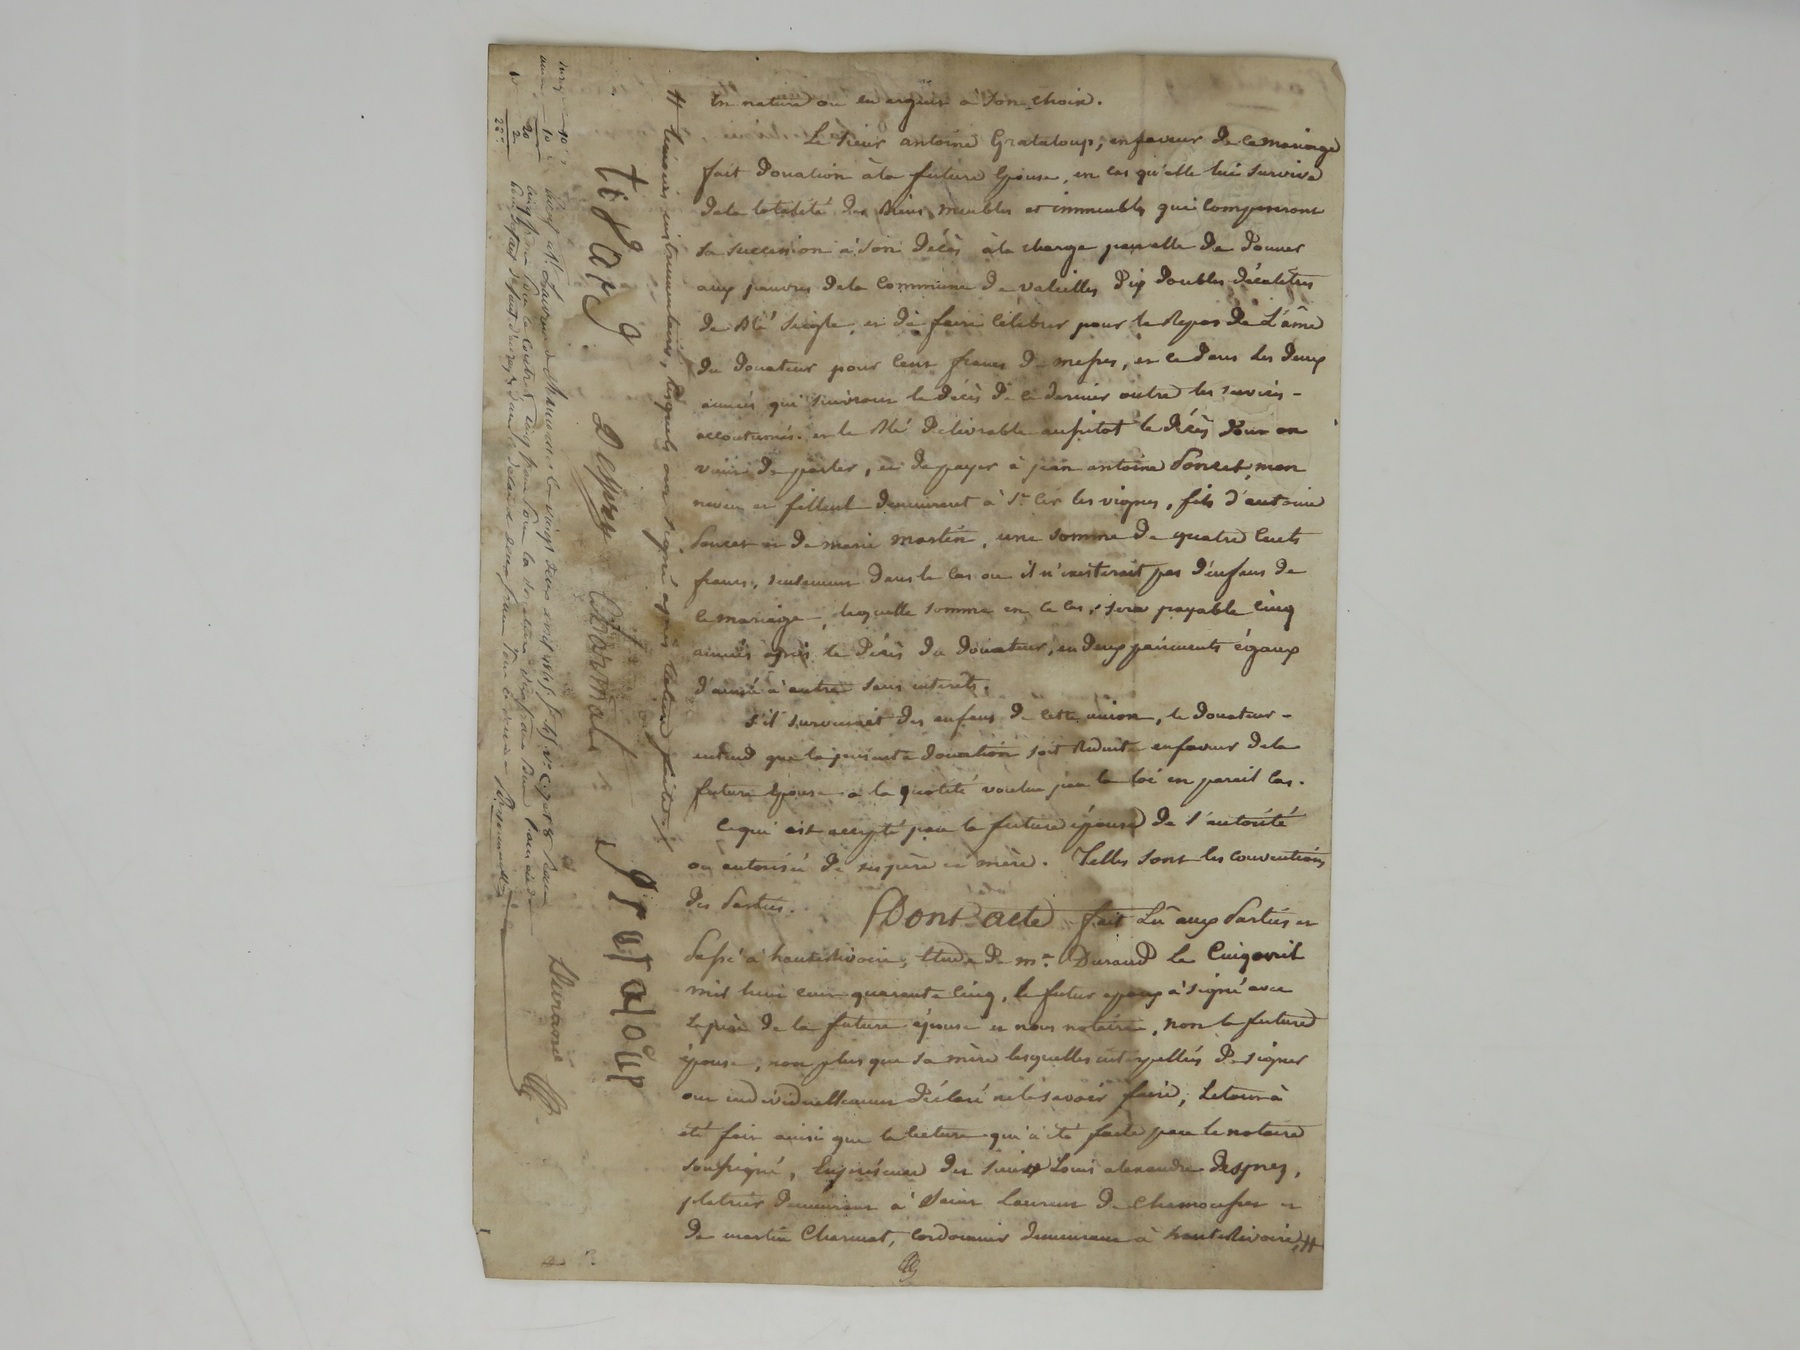 en nature ou en argent à son choix.
Le sieur antoine Grataloup, en faveur de ce mariage
fait donation à la future épouse, en cas qu'elle lui survive
de la totalité des biens, meubles et immeubles qui composeront
sa succession à son décès à la charge par elle de donner
aux pauvres de la commune de valeilles dix doubles décalitres
de blé seigle, et de faire célébrer pour le repos de L'âme
du donateur pour cent francs de messes, et ce dans les deux
années qui suivront le décès de ce dernier outre les services
accoutumés. et le blé délivrable aussitot le décès dont on
vient de parler, et de payer à jean antoine Poncet, mon
neveu et filleul demeurant à St cir les vignes, fils d'antoine
Poncet et de marie martin, une somme de quatre cents
francs, seulement dans le cas ou il n'existerait pas d'enfans de
ce mariage, laquelle somme en ce cas, sera payable cinq
années après le décès du donateur, en deux paiements égaux
d'année à autre sans interets.
S'il survenait des enfans de cette union, le donateur
entend que la présente donation soit réduite en faveur de la
future épouse à la quotité voulue par la loi en pareil cas.
Ce qui est accepté par la future épouse de l'autorité
ou autorisée de ses père et mère. Telles sont les conventions
des Parties. Dont acte fait Lû aux Parties et
Passé à hauterivoire, étude de me. Durand le Cinq avril
mil huit cent quarante cinq, le futur époux à signé avec
le père de la future épouse et nous notaire, non la future
épouse, non plus que sa mère lesquelles interpellées de signer
ont individuellement déclaré ne le savoir faire, Le tout à
été fait ainsi que la lecture qui à été faite par le notaire
soussigné, En présence des sieurs Louis alexandre Desprez,
platrier demeurant à Saint Laurent de Chamousset et
de martin Charmet, cordonnier demeurant à hauterivoire, #
# témoins instrumentaires, lesquels ont signé après lecture faite
Desprez Charmet Grataloup
Durand
St Laurent de Chamousset le vingt